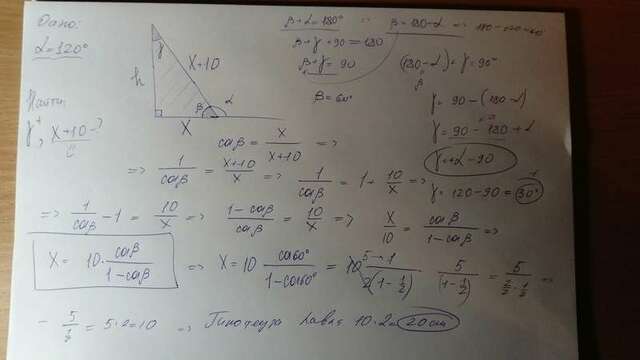 Дано:
α = 120°
Найти
γ, x+10 - ?
γ
h
x+10
β
α
x
β + α = 180°
β = 180 - α
β + γ + 90 = 180
β + γ = 90
β = 60°
(180 - α) + γ = 90°
β
γ = 90 - (180 - α)
γ = 90 - 180 + α
γ = α - 90
γ = 120 - 90 = 30°
cos β = x/(x+10) =>
=> 1/cos β = (x+10)/x => 1/cos β = 1 + 10/x =>
=> 1/cos β - 1 = 10/x => (1 - cos β)/cos β = 10/x => x/10 = cos β/(1 - cos β) =>
x = 10 · cos β/(1 - cos β) => x = 10 cos 60°/(1 - cos 60°) = 10 · 1/(2(1 - 1/2)) 5/(1 - 1/2) = 5/(2/2 - 1/2) =>
= 5/(1/2) = 5·2 = 10 => Гипотенуза равна 10·2 = 20 cm